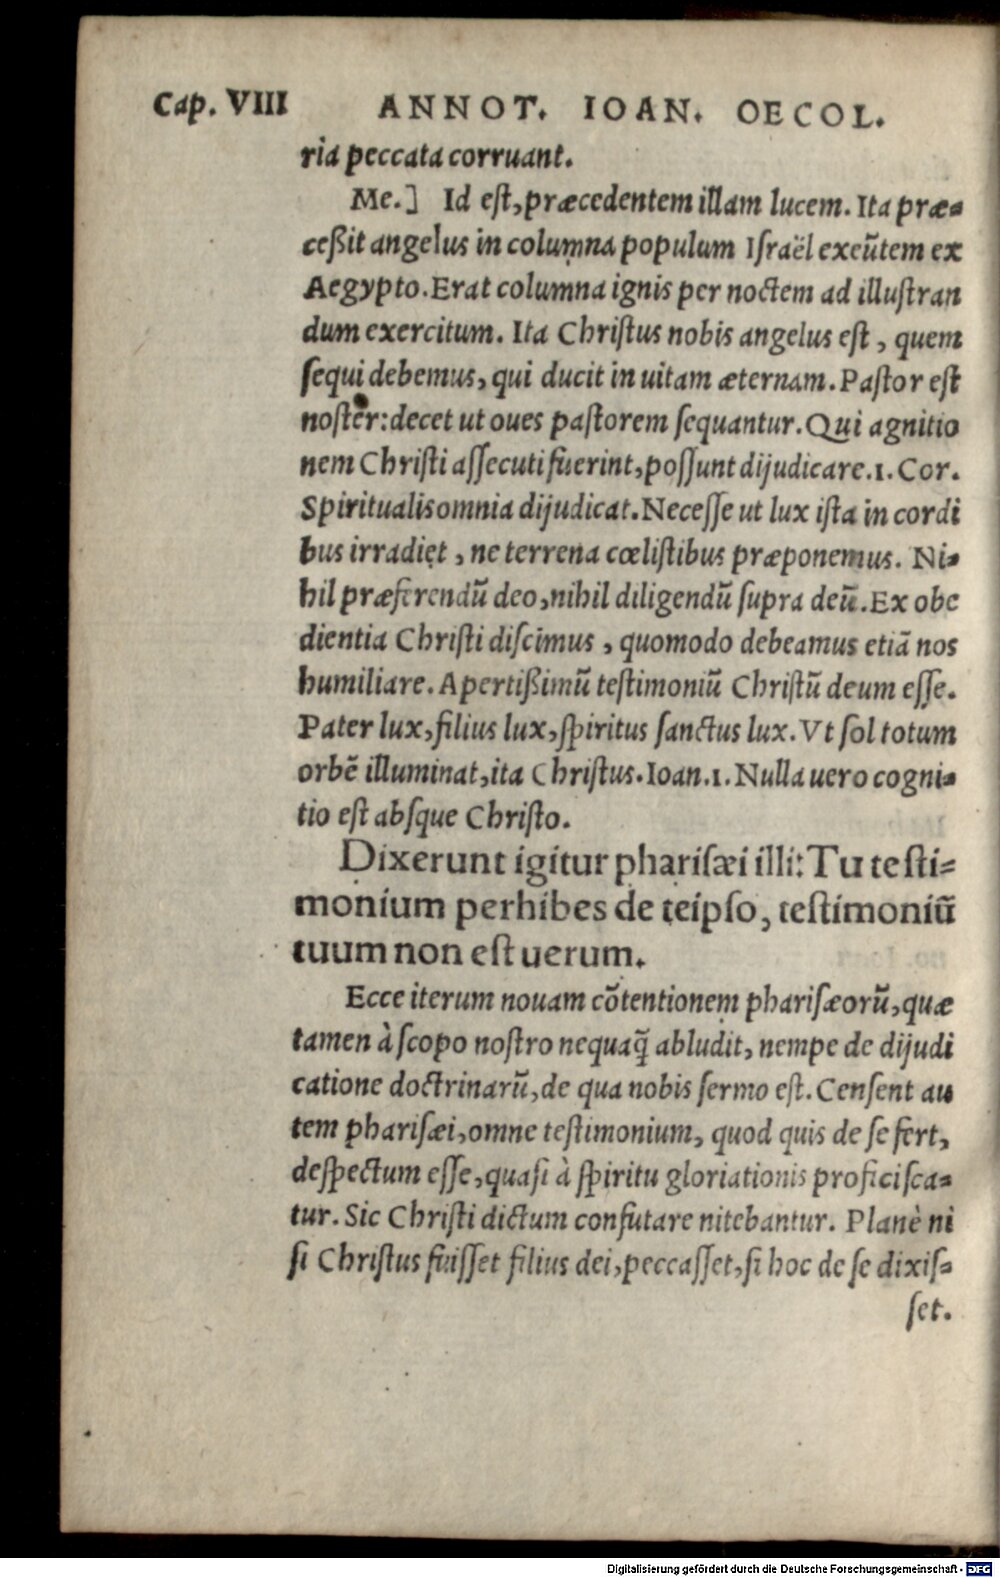 Cap. VIII ANNOT. IOAN. OECOL.
ria peccata corruant.
Me.] Id eſt, præcedentem illam lucem. Ita præ=
ceßit angelus in columna populum Iſraël exeũtem ex
Aegypto. Erat columna ignis per noctem ad illuſtran
dum exercitum. Ita Chriſtus nobis angelus eſt, quem
ſequi debemus, qui ducit in uitam æternam. Paſtor eſt
noſter: decet ut oues paſtorem ſequantur. Qui agnitio
nem Chriſti aſſecuti fuerint, poſſunt dijudicare. 1. Cor.
Spiritualis omnia dijudicat. Neceſſe ut lux iſta in cordi
bus irradiet, ne terrena cœliſtibus præponemus. Ni=
hil præferendũ deo, nihil diligendũ ſupra deũ. Ex obe
dientia Chriſti diſcimus, quomodo debeamus etiã nos
humiliare. Apertißimũ teſtimoniũ Chriſtũ deum eſſe.
Pater lux, filius lux, ſpiritus ſanctus lux. Vt ſol totum
orbẽ illuminat, ita Chriſtus. Ioan. 1. Nulla uero cogni=
tio eſt abſque Chriſto.
Dixerunt igitur phariſæi illi: Tu teſti=
monium perhibes de teipſo, teſtimoniũ
tuum non eſt uerum.
Ecce iterum nouam cõtentionem phariſæorũ, quæ
tamen à ſcopo noſtro nequaq̃ abludit, nempe de dijudi
catione doctrinarũ, de qua nobis ſermo eſt. Cenſent au
tem phariſæi, omne teſtimonium, quod quis de ſe fert,
deſpectum eſſe, quaſi à ſpiritu gloriationis proficiſca=
tur. Sic Chriſti dictum confutare nitebantur. Planè ni
ſi Chriſtus fuiſſet filius dei, peccaſſet, ſi hoc de ſe dixiſ=
ſet.
Digitalisierung gefördert durch die Deutsche Forschungsgemeinschaft - DFG